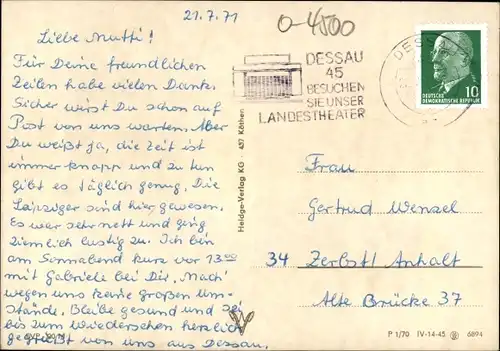 21.7.71
0-4500
Liebe Mutti!
Für Deine freundlichen
Zeilen haben vielen Dank.
Sicher wirst Du schon auf
Post von uns warten. Aber
Du weißt ja, die Zeit ist
immer knapp und zu tun
gibt es täglich genug. Die
Leipziger sind hier gewesen.
Es war sehr nett und ging
ziemlich lustig zu. Ich bin
am Sonnabend kurz vor 13.00
mit Gabriele bei Dir. Mach'
wegen uns keine großen Um-
stände. Bleibe gesund und sei
bis zum Wiedersehen herzlich
gegrüßt von uns aus Dessau.
Heldge-Verlag KG · 437 Köthen
DESSAU
45
BESUCHEN
SIE UNSER
LANDESTHEATER
DESSAU
10
DEUTSCHE
DEMOKRATISCHE REPUBLIK
Frau
Gertrud Wenzel
34 Zerbst/Anhalt
Alte Brücke 37
P 1/70 IV-14-45 6894